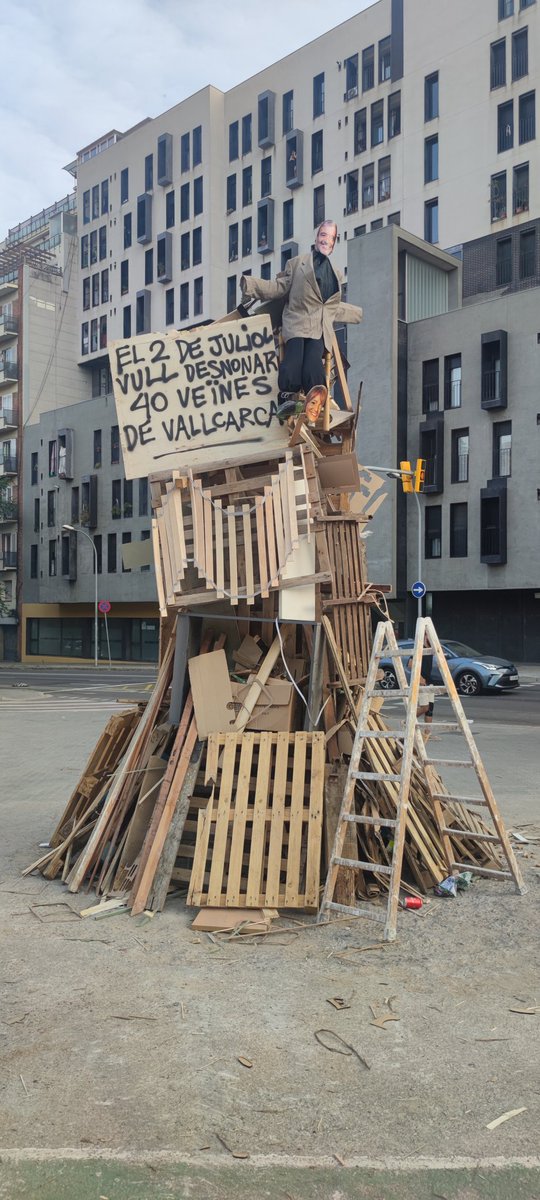 EL 2 DE JULIOL
VULL DESNONAR
40 VEÏNES
DE VALLCARCA